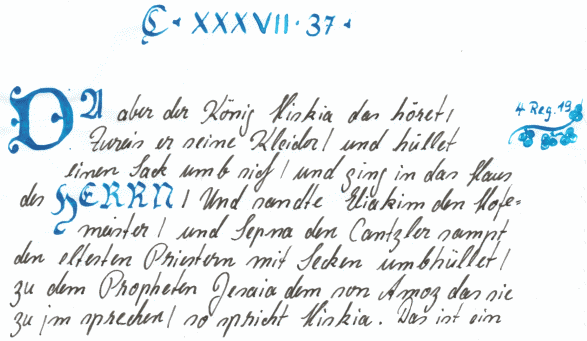 C · XXXVII · 37 ·
DA aber der König Hiskia das höret/
4. Reg. 19.
Zureis er seine Kleider/ und hüllet
einen Sack umb sich/ und ging in das Haus
des HERRN/ Und sandte Eliakim den Hofe=
meister/ und Sepna den Cantzler sampt
den eltesten Priestern mit Secken umbhüllet/
zu dem Propheten Jesaia dem son Amoz das sie
zu jm sprechen/ so spricht Hiskia. Das ist ein